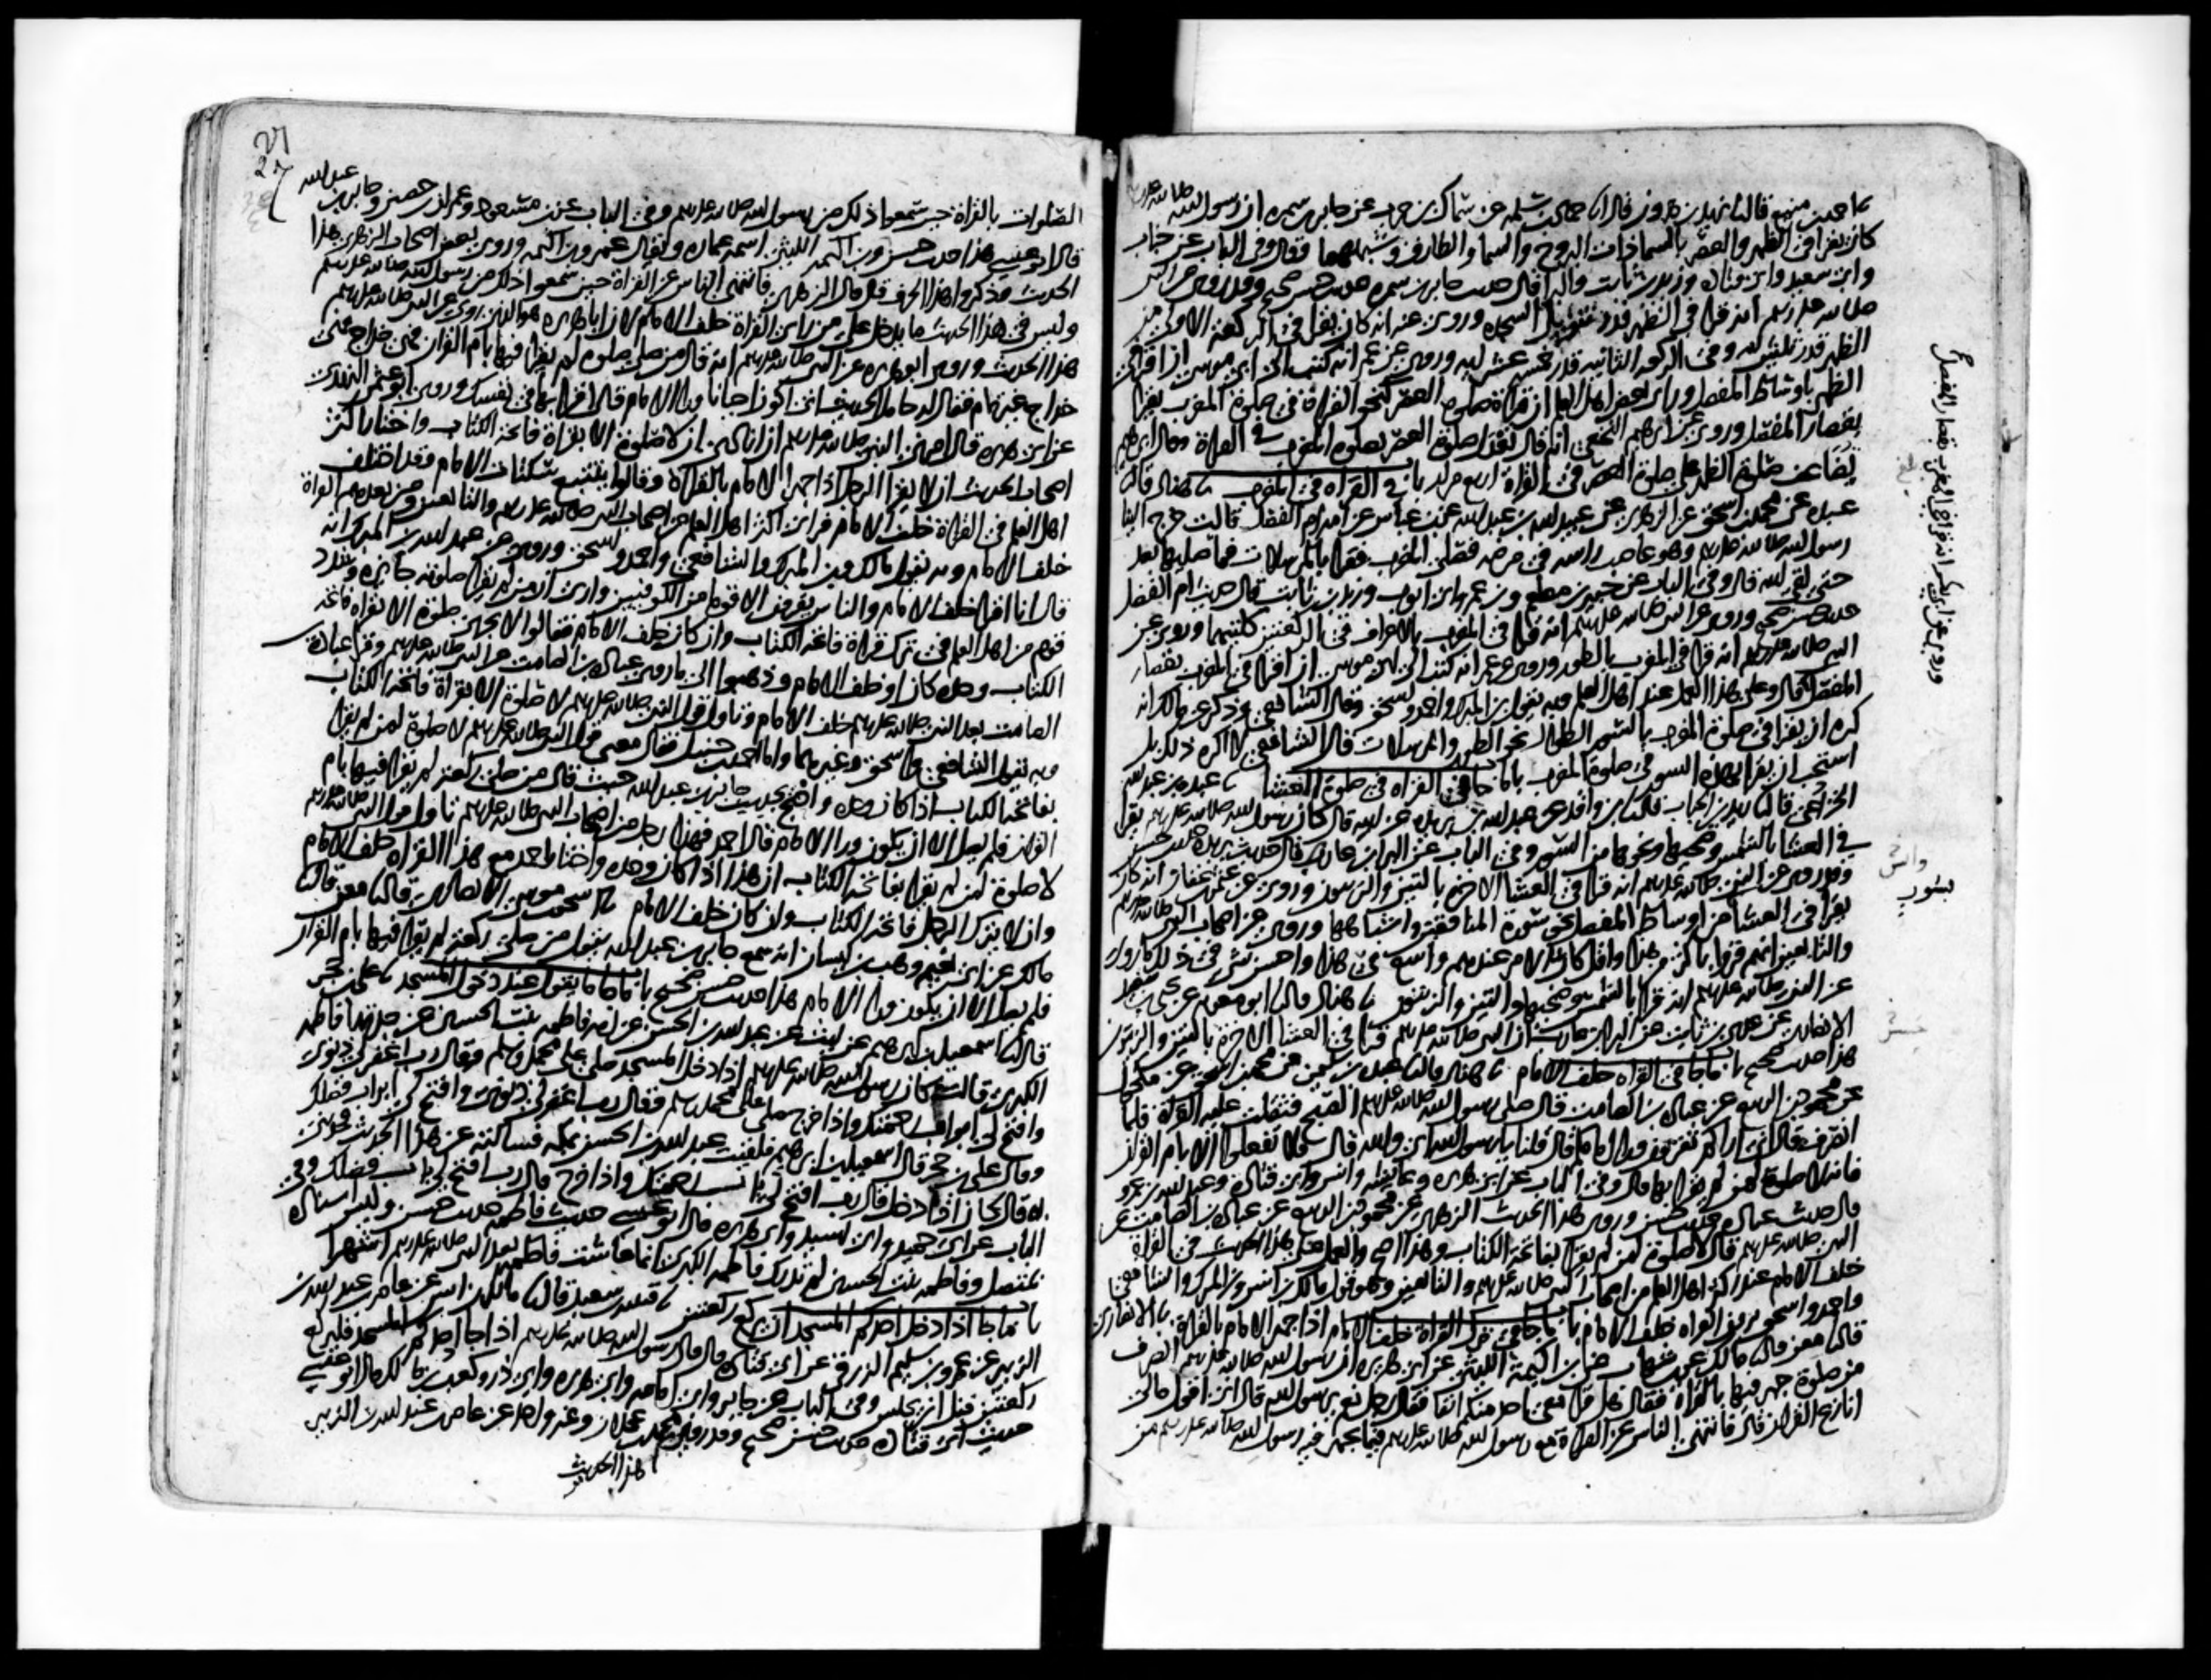 ثنا احمد بن منيع قال ثنا يزيد بن هارون قال انا حماد بن سلمه عن سماك بن حرب عن جابر بن سمره ان رسول الله صلى الله عليه
كان يقرا في الظهر والعصر بالسما ذات البروج والسما والطارق وشبههما قال وفي الباب عن خباب
وابي سعيد وابي قتاده وزيد بن ثابت والبرا قال حديث جابر بن سمره حديث حسن صحيح وقد روي عن النبي
صلى الله عليه وسلم انه قرا في الظهر قدر تنزيل السجده وروي عنه انه كان يقرا في الركعة الاولى من
الظهر قدر ثلثين ايه وفي الركعه الثانيه قدر خمس عشر ايه وروي عن عمر انه كتب الى ابي موسى ان اقرا في
الظهر باوساط المفصل وراى بعض اهل العلم ان قراة صلوة العصر كنحو القراة في صلوة المغرب يقرا
بقصار المفصل وروي عن ابرهيم النخعي انه قال تعدل صلوة العصر بصلوة المغرب في القراة وقال ابرهيم
تضاعف صلوة الظهر على صلوة العصر في القراة اربع مرار باب في القراه في المغرب ثنا هناد قال ثنا
عبده عن محمد بن اسحق عن الزهري عن عبيد الله بن عبد الله عن ابن عباس عن امه ام الفضل قالت خرج الينا
رسول الله صلى الله عليه وسلم وهو عاصب راسه في مرضه فصلى المغرب فقرا بالمرسلات فما صلاها بعد
حتى لقي الله قال وفي الباب عن جبير بن مطعم وابن عمر وابي ايوب وزيد بن ثابت قال حديث ام الفضل
حديث حسن صحيح وروي عن النبي صلى الله عليه وسلم انه قرا في المغرب بالاعراف في الركعتين كلتيهما وروي عن
النبي صلى الله عليه وسلم انه قرا في المغرب بالطور وروي عن عمر انه كتب الى ابي موسى ان اقرا في المغرب بقصار
المفصل قال وعلى هذا العمل عند اهل العلم وبه يقول ابن المبرك واحمد واسحق وقال الشافعي وذكر عن مالك انه
كره ان يقرا في صلوة المغرب بالسور الطوال نحو الطور والمرسلات قال الشافعي لا اكره ذلك بل
استحب ان يقرا بهذه السور في صلوة المغرب باب ما جا في القراه في صلوة العشا ثنا عبده بن عبد الله
الخزاعي قال ثنا زيد بن الحباب قال ثنا ابن واقد عن عبد الله بن بريده عن ابيه قال كان رسول الله صلى الله عليه وسلم يقرا
في العشا بالشمس وضحيها ونحوها من السور وفي الباب عن البرا بن عازب قال حديث بريده حديث حسن
وقد روي عن النبي صلى الله عليه وسلم انه قرا في العشا الاخره بالتين والزيتون وروي عن عثمن بن عفان انه كان
يقرا في العشا من اوساط المفصل نحو سورة المنافقين واشباهها وروي عن اصحاب النبي صلى الله عليه وسلم
والتابعين انهم قروا باكثر من هذا واقل كان الامر عندهم واسع في هذا واحسن شي في ذلك ما روي
عن النبي صلى الله عليه وسلم انه قرا بالشمس وضحيها والتين والزيتون ثنا هناد قال ثنا ابو معويه عن يحيى بن سعيد
الانصاري عن عدي بن ثابت عن البرا بن عازب ان النبي صلى الله عليه وسلم قرا في العشا الاخرة بالتين والزيتون
هذا حديث صحيح باب ما جا في القراه خلف الامام ثنا هناد قال ثنا عبده بن سليمن عن محمد بن اسحق عن مكحول
عن محمود بن الربيع عن عباده بن الصامت قال صلى رسول الله صلى الله عليه وسلم الصبح فثقلت عليه القراة فلما
انصرف قال اني اراكم تقرؤن ورا امامكم قال قلنا يا رسول الله اي والله قال فلا تفعلوا الا بام القران
فانه لا صلوة لمن لم يقرا بها قال وفي الباب عن ابي هريره وعايشه وانس وابي قتاده وعبد الله بن عمرو
قال حديث عباده حديث حسن وروى هذا الحديث الزهري عن محمود بن الربيع عن عباده بن الصامت عن
النبي صلى الله عليه وسلم قال لا صلوة لمن لم يقرا بفاتحة الكتاب وهذا اصح والعمل على هذا الحديث في القراة
خلف الامام عند اكثر اهل العلم من اصحاب النبي صلى الله عليه وسلم والتابعين وهو قول مالك بن انس وابن المبرك والشافعي
واحمد واسحق يرون القراه خلف الامام باب ما جا في ترك القراة خلف الامام اذا جهر الامام بالقراة ثنا الانصاري
قال ثنا معن قال ثنا مالك عن ابن شهاب عن ابن اكيمة الليثي عن ابي هريره ان رسول الله صلى الله عليه وسلم انصرف
من صلوة جهر فيها بالقراة فقال هل قرا معي احد منكم انفا فقال رجل نعم يرسول الله قال اني اقول ما لي
انازع القران قال فانتهى الناس عن القراة مع رسول الله صلى الله عليه وسلم فيما يجهر فيه رسول الله صلى الله عليه وسلم من
وروي عن ابي بكر انه قرا في المغرب بقصار المفصل
وانس
الصلوات بالقراة حين سمعوا ذلك من رسول الله صلى الله عليه وسلم وفي الباب عن ابن مسعود وعمران بن حصين وجابر بن عبد الله
قال ابو عيسى هذا حديث حسن وابن اكيمه الليثي اسمه عماره ويقال عمرو بن اكيمه وروى بعض اصحاب الزهري هذا
الحديث وذكروا هذا الحرف قال قال الزهري فانتهى الناس عن القراة حين سمعوا ذلك من رسول الله صلى الله عليه وسلم
وليس في هذا الحديث ما يدخل على من راى القراة خلف الامام لان ابا هريره هو الذي روى عن النبي صلى الله عليه وسلم
هذا الحديث وروى ابو هريره عن النبي صلى الله عليه وسلم انه قال من صلى صلوة لم يقرا فيها بام القران فهي خداج فهي
خداج غير تمام فقال له حامل الحديث اني اكون احيانا ورا الامام قال اقرا بها في نفسك وروى ابو عثمن النهدي
عن ابي هريره قال امرني النبي صلى الله عليه وسلم ان انادي ان لا صلوة الا بقراة فاتحة الكتاب واختار اكثر
اصحاب الحديث ان لا يقرا الرجل اذا جهر الامام بالقراة وقالوا يتتبع سكتات الامام وقد اختلف
اهل العلم في القراة خلف الامام فراى اكثر اهل العلم من اصحاب النبي صلى الله عليه وسلم والتابعين ومن بعدهم القراة
خلف الامام وبه يقول مالك وابن المبرك والشافعي واحمد واسحق وروي عن عبد الله بن المبرك انه
قال انا اقرا خلف الامام والناس يقرؤن الا قوما من الكوفيين وارى ان من لم يقرا صلوته جايزه وشدد
قوم من اهل العلم في ترك قراة فاتحة الكتاب وان كان خلف الامام فقالوا لا تجزى صلوة الا بقراه فاتحه
الكتاب وحده كان او خلف الامام وذهبوا الى ما روى عباده بن الصامت عن النبي صلى الله عليه وسلم وقرا عباده بن
الصامت بعد النبي صلى الله عليه وسلم خلف الامام وتاول قول النبي صلى الله عليه وسلم لا صلوة الا بقراة فاتحة الكتاب
وبه يقول الشافعي واسحق وغيرهما واما احمد بن حنبل فقال معنى قول النبي صلى الله عليه وسلم لا صلوة لمن لم يقرا
بفاتحة الكتاب اذا كان وحده واحتج بحديث جابر بن عبد الله حيث قال من صلى ركعة لم يقرا فيها بام
القران فلم يصل الا ان يكون ورا الامام قال احمد فهذا رجل من اصحاب النبي صلى الله عليه وسلم تاول قول النبي صلى الله عليه وسلم
لا صلوة لمن لم يقرا بفاتحة الكتاب ان هذا اذا كان وحده واختار احمد مع هذا القراه خلف الامام
وان لا يترك الرجل فاتحة الكتاب وان كان خلف الامام ثنا اسحق بن موسى الانصاري قال ثنا معن قال ثنا
مالك عن ابي نعيم وهب بن كيسان انه سمع جابر بن عبد الله يقول من صلى ركعة لم يقرا فيها بام القران
فلم يصل الا ان يكون ورا الامام هذا حديث حسن صحيح باب ما جا ما يقول عند دخول المسجد ثنا علي بن حجر
قال ثنا اسمعيل بن ابرهيم عن ليث عن عبد الله بن الحسن عن امه فاطمه بنت الحسين عن جدتها فاطمه
الكبرى قالت كان رسول الله صلى الله عليه وسلم اذا دخل المسجد صلى على محمد وسلم وقال رب اغفر لي ذنوبي
وافتح لي ابواب رحمتك واذا خرج صلى على محمد وسلم فقال رب اغفر لي ذنوبي وافتح لي ابواب فضلك
وقال علي بن حجر قال اسمعيل بن ابرهيم فلقيت عبد الله بن الحسن بمكه فسالته عن هذا الحديث فحدثني
به قال كان اذا دخل قال رب افتح لي باب رحمتك واذا خرج قال رب افتح لي باب فضلك وفي
الباب عن ابي حميد وابي اسيد وابي هريره قال ابو عيسى حديث فاطمه حديث حسن وليس اسناده
بمتصل وفاطمه بنت الحسين لم تدرك فاطمه الكبرى انما عاشت فاطمه بعد النبي صلى الله عليه وسلم اشهرا
باب ما جا اذا دخل احدكم المسجد ان يركع ركعتين ثنا قتيبه بن سعيد قال ثنا مالك بن انس عن عامر بن عبد الله بن
الزبير عن عمرو بن سليم الزرقي عن ابي قتاده قال قال رسول الله صلى الله عليه وسلم اذا جا احدكم المسجد فليركع
ركعتين قبل ان يجلس وفي الباب عن جابر وابي امامه وابي هريره وابي ذر وكعب بن مالك قال ابو عيسى
حديث ابي قتاده حديث حسن صحيح وقد روى محمد بن عجلان وغير واحد عن عامر بن عبد الله بن الزبير
هذا الحديث